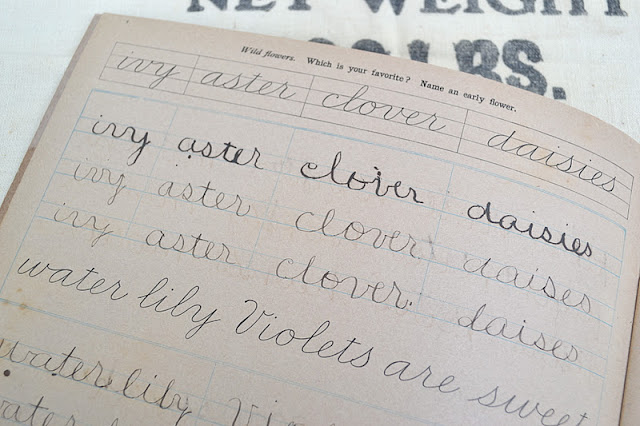 NET WEIGHT
LBS.
Wild flowers. Which is your favorite? Name an early flower.
ivy aster clover daisies
ivy aster clover daisies
ivy aster clover daises
ivy aster clover daises
water lily Violets are sweet
water lily
water